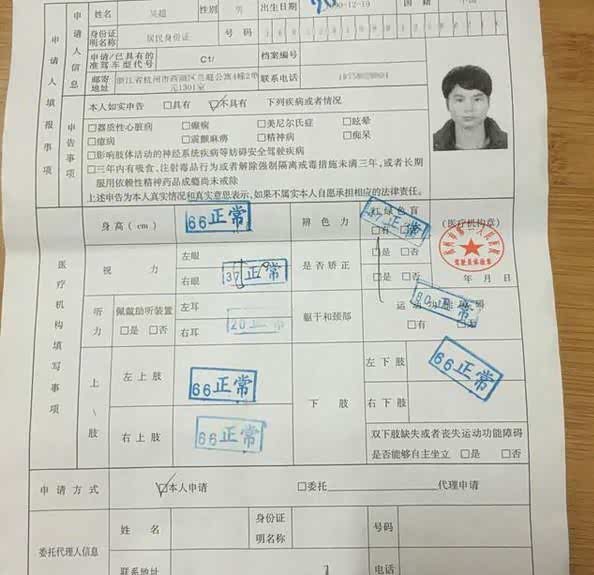 姓名 吴超 性别 男 出生日期 90-12-19 国籍 中国
申请人填报事项
申请人信息
身份证明名称 居民身份证 号码
申请/已具有的准驾车型代号 C1/ 档案编号
邮寄地址 浙江省杭州市西湖区 公寓4幢2单元1301室 联系电话
申告事项
本人如实申告 □具有 ☑不具有 下列疾病或者情况
□器质性心脏病 □癫痫 □美尼尔氏症 □眩晕
□癔病 □震颤麻痹 □精神病 □痴呆
□影响肢体活动的神经系统疾病等妨碍安全驾驶疾病
□三年内有吸食、注射毒品行为或者解除强制隔离戒毒措施未满三年,或者长期
服用依赖性精神药品成瘾尚未戒除
上述申告为本人真实情况和真实意思表示,如果不属实本人自愿承担相应的法律责任。
医疗机构填写事项
身高(cm) 66正常 辨色力 红绿色盲 □有 正常 (医疗机构章)
视力 左眼 是否矫正 □是 □否
右眼 37正常 □是 □否 年 月 日
听力 佩戴助听装置 □是 □否 左耳 躯干和颈部 运动功能障碍 80正常
右耳 20正常 □有
上肢 左上肢 66正常 下肢 左下肢 66正常
右下肢
右上肢 66正常 双下肢缺失或者丧失运动功能障碍
是否能够自主坐立 □是 □否
申请方式 ☑本人申请 □委托 代理申请
委托代理人信息 姓名 身份证明名称 号码
联系地址 电话